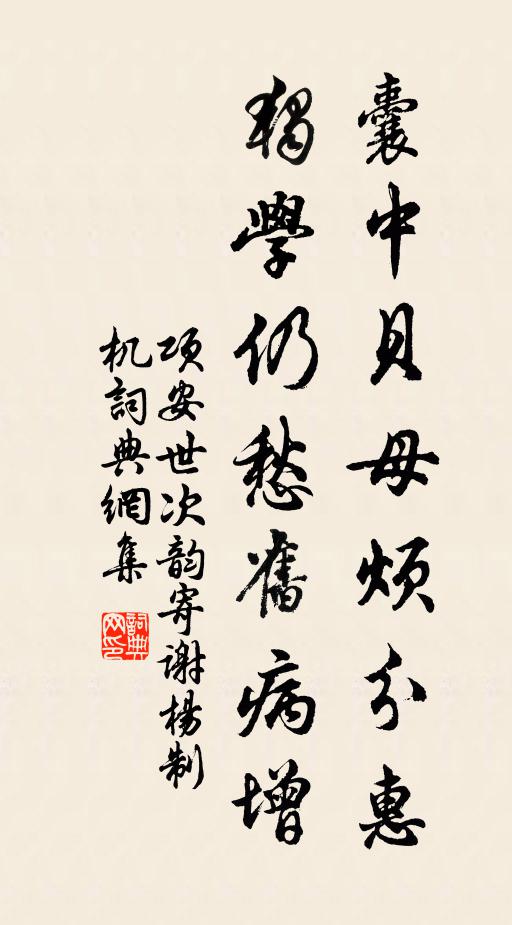 囊中貝母煩分惠
獨學仍愁舊病增
項安世次韵寄謝楊制
机詞典網集
詞典
网印